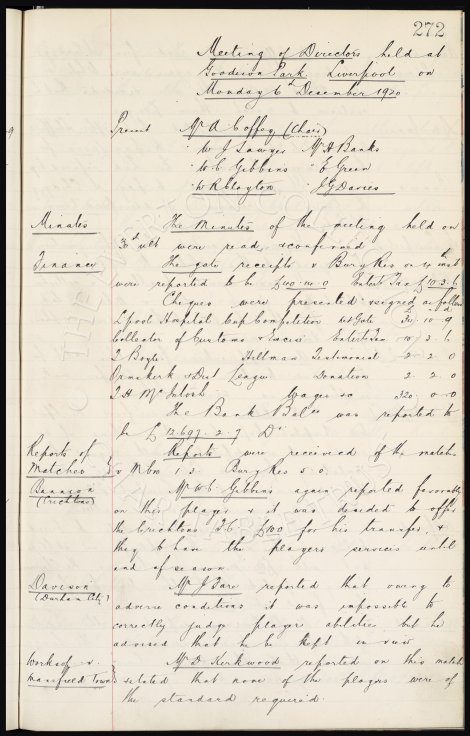 272
Meeting of Directors held at
Goodison Park Liverpool on
Monday 6th December 1920
Present Mr A Coffey (Chair)
" W J Sawyer Mr H Banks
" W C Gibbins " E Green
" W R Clayton " J G Davies
Minutes The Minutes of the meeting held on
30th ult were read & confirmed
Finance The gate receipts v Bury Res on 4th inst
were reported to be Entert Tax £10.3.6
Cheques were presented & signed as follows
£ s d
Lpool Hospital Cup Competition ½ Gate 10 9
Collector of Customs & Excise Entert Tax 10 3 6
T Boyle Hillman Testimonial 2 2 0
Ormskirk & Dist League Donation 2 2 0
T H McIntosh Wages &c 320 0 0
The Bank Balce was reported to
be £12,697. 2. 7 Dr
Reports of Matches Reports were received of the matches
v Mbro 1.3 Bury Res 5.0
Bannion (Crichtons) Mr W C Gibbins again reported favorably
on this player & it was decided to offer
the Crichtons F.C. £100 for his transfer, &
they to have the players services until
end of season
Davison (Durham City) Mr J Bare reported that owing to
adverse conditions it was impossible to
correctly judge players abilities but he
advised that he be kept in view
Worksop v Mansfield Town Mr D Kirkwood reported on this match
& stated that none of the players were of
the standard required.